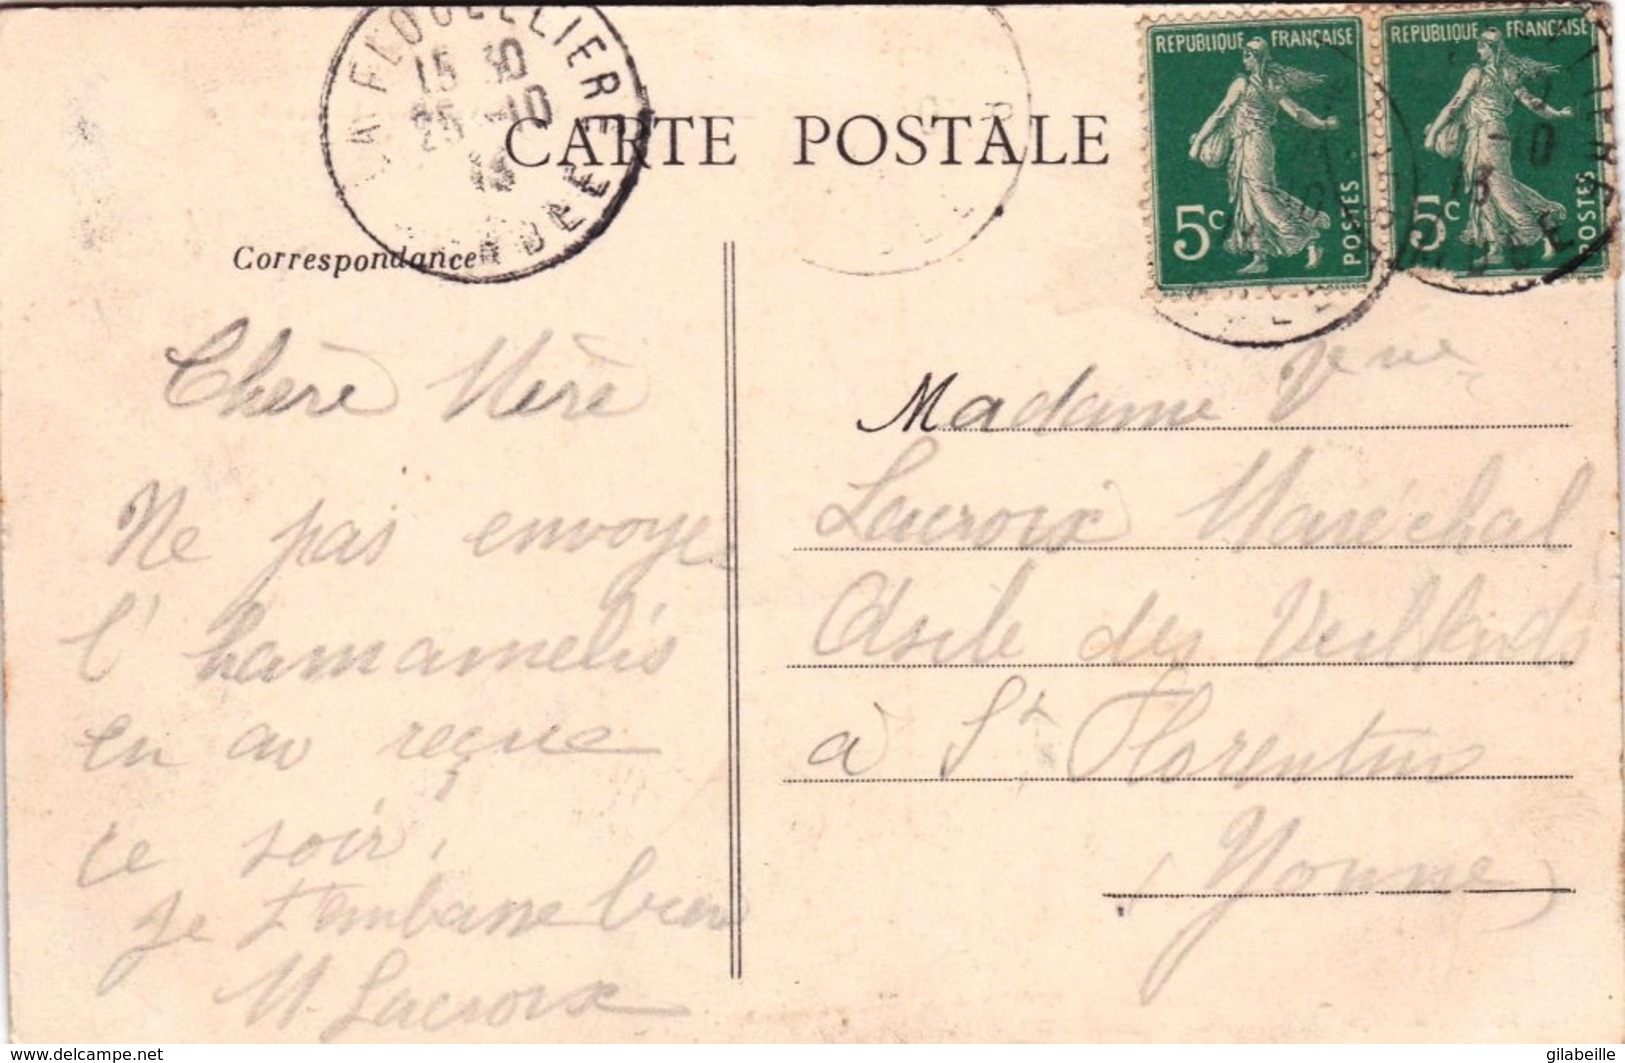 LA FLOCELLIERE
15 30
25 -10
13
VENDEE
CARTE POSTALE
REPUBLIQUE FRANÇAISE
5c
POSTES
REPUBLIQUE FRANÇAISE
5c
POSTES
-10
13
Correspondance
Cherè Merè
Ne pas envoyer
l'hamamelis
en av reçue
ce soir,
Je t'embasse bien
M. Lacroix
Madame Vve
Lacroix Maréchal
Asile des Veillards
à St Florentin
(Yonne)
www.delcampe.net
gilabeille